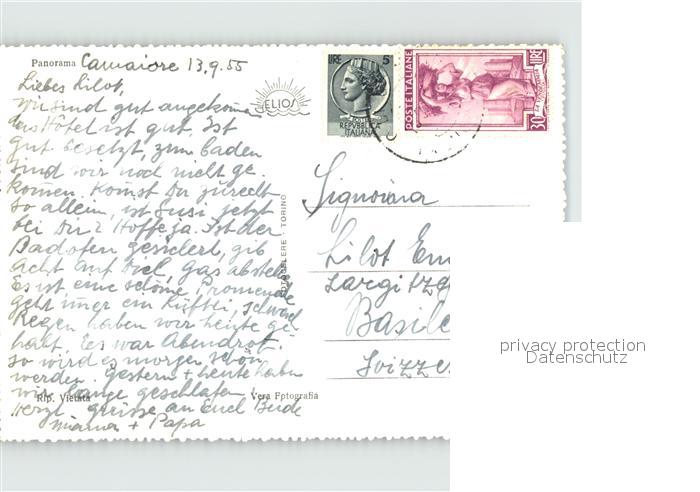 Panorama Camaiore 13.9.55
Liebes Lilot,
wir sind gut angekommen
das Hotel ist gut. Ist
gut besetzt, zum baden
sind wir noch nicht ge-
kommen. Kommst Du zurecht
so allein, ist Susi jetzt
bei Dir? Hoffe ja. Ist der
Badofen gesichert, gib
acht auf Diel, gas abstelle
Es ist eine schöne Promenade
geht immer ein Lüftli,
Regen haben wir heute ge
habt. Es war Abendrot.
so wird es morgen schön
werden. Gestern + heute haben
wir lange geschlafen
Herzl. grüsse an Euch Beide
Mama + Papa
Rip. Vietata
Vera Fotografia
ELIOS
FOTOCELERE - TORINO
LIRE 5
REPVBBLICA
ITALIANA
POSTE ITALIANE
30 LIRE
Signorina
Lilot Em
Largitzg
Basile
Svizze
privacy protection
Datenschutz